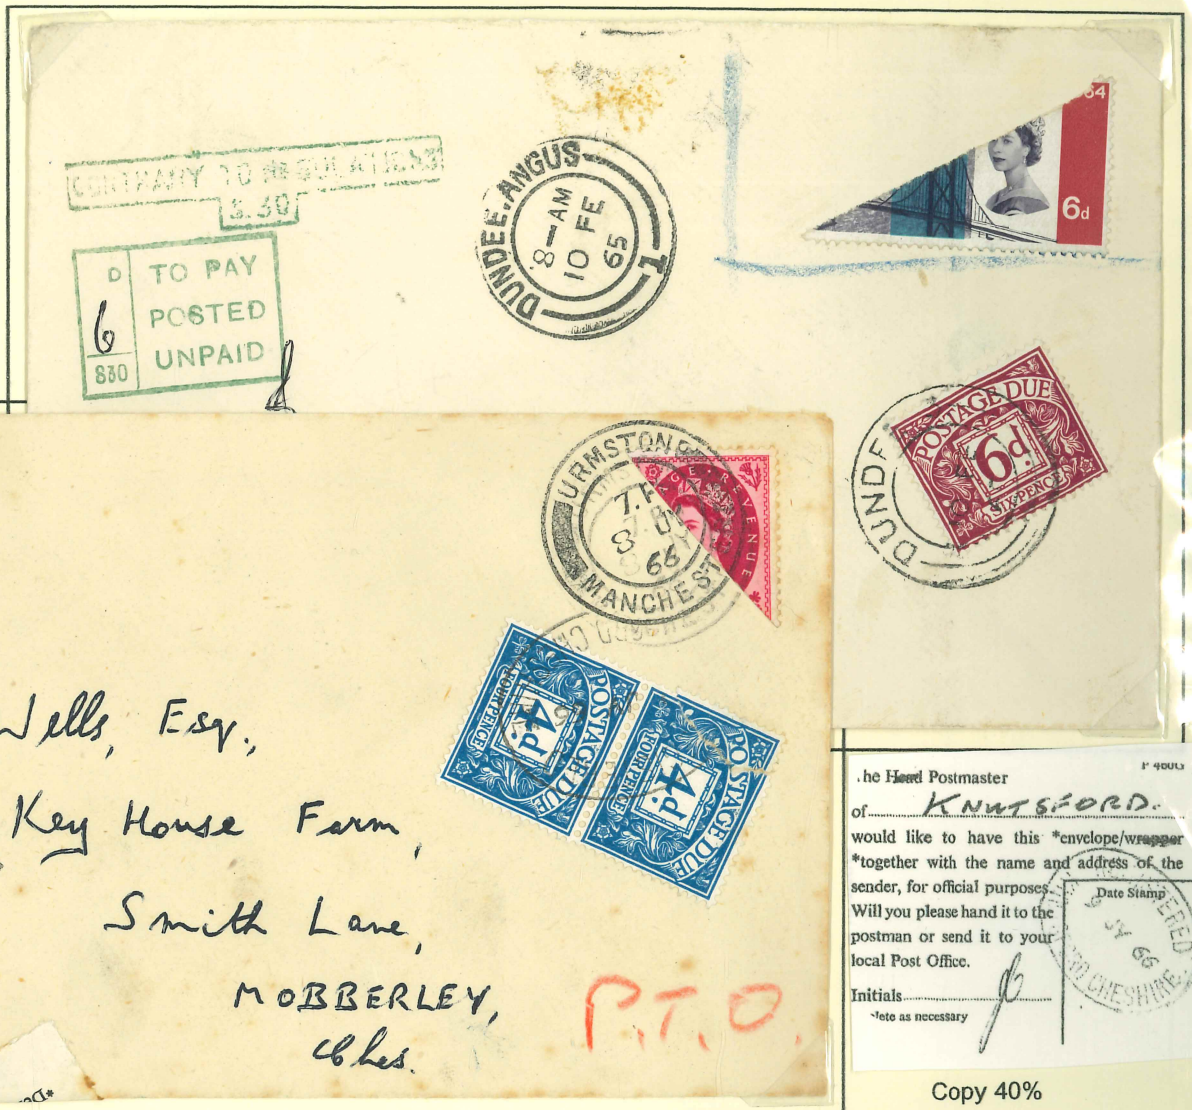 CONTRARY TO REGULATIONS
S. 30
D
6
830
TO PAY
POSTED
UNPAID
DUNDEE. ANGUS
8-AM
10 FE
65
1
64
6d
POSTAGE DUE
6d.
SIXPENCE
DUNDE
URMSTON
MANCHEST
8
66
POSTAGE REVENUE
POSTAGE DUE
4d.
FOUR PENCE
POSTAGE DUE
4d.
FOUR PENCE
Wells, Esq.,
Key House Farm,
Smith Lane,
MOBBERLEY,
Ches.
P.T.O.
P 460G
he Head Postmaster
of KNUTSFORD.
would like to have this *envelope/wrapper
*together with the name and address of the
sender, for official purposes.
Will you please hand it to the
postman or send it to your
local Post Office.
Initials
lete as necessary
Date Stamp
9 JY 66
CHESHIRE
Copy 40%